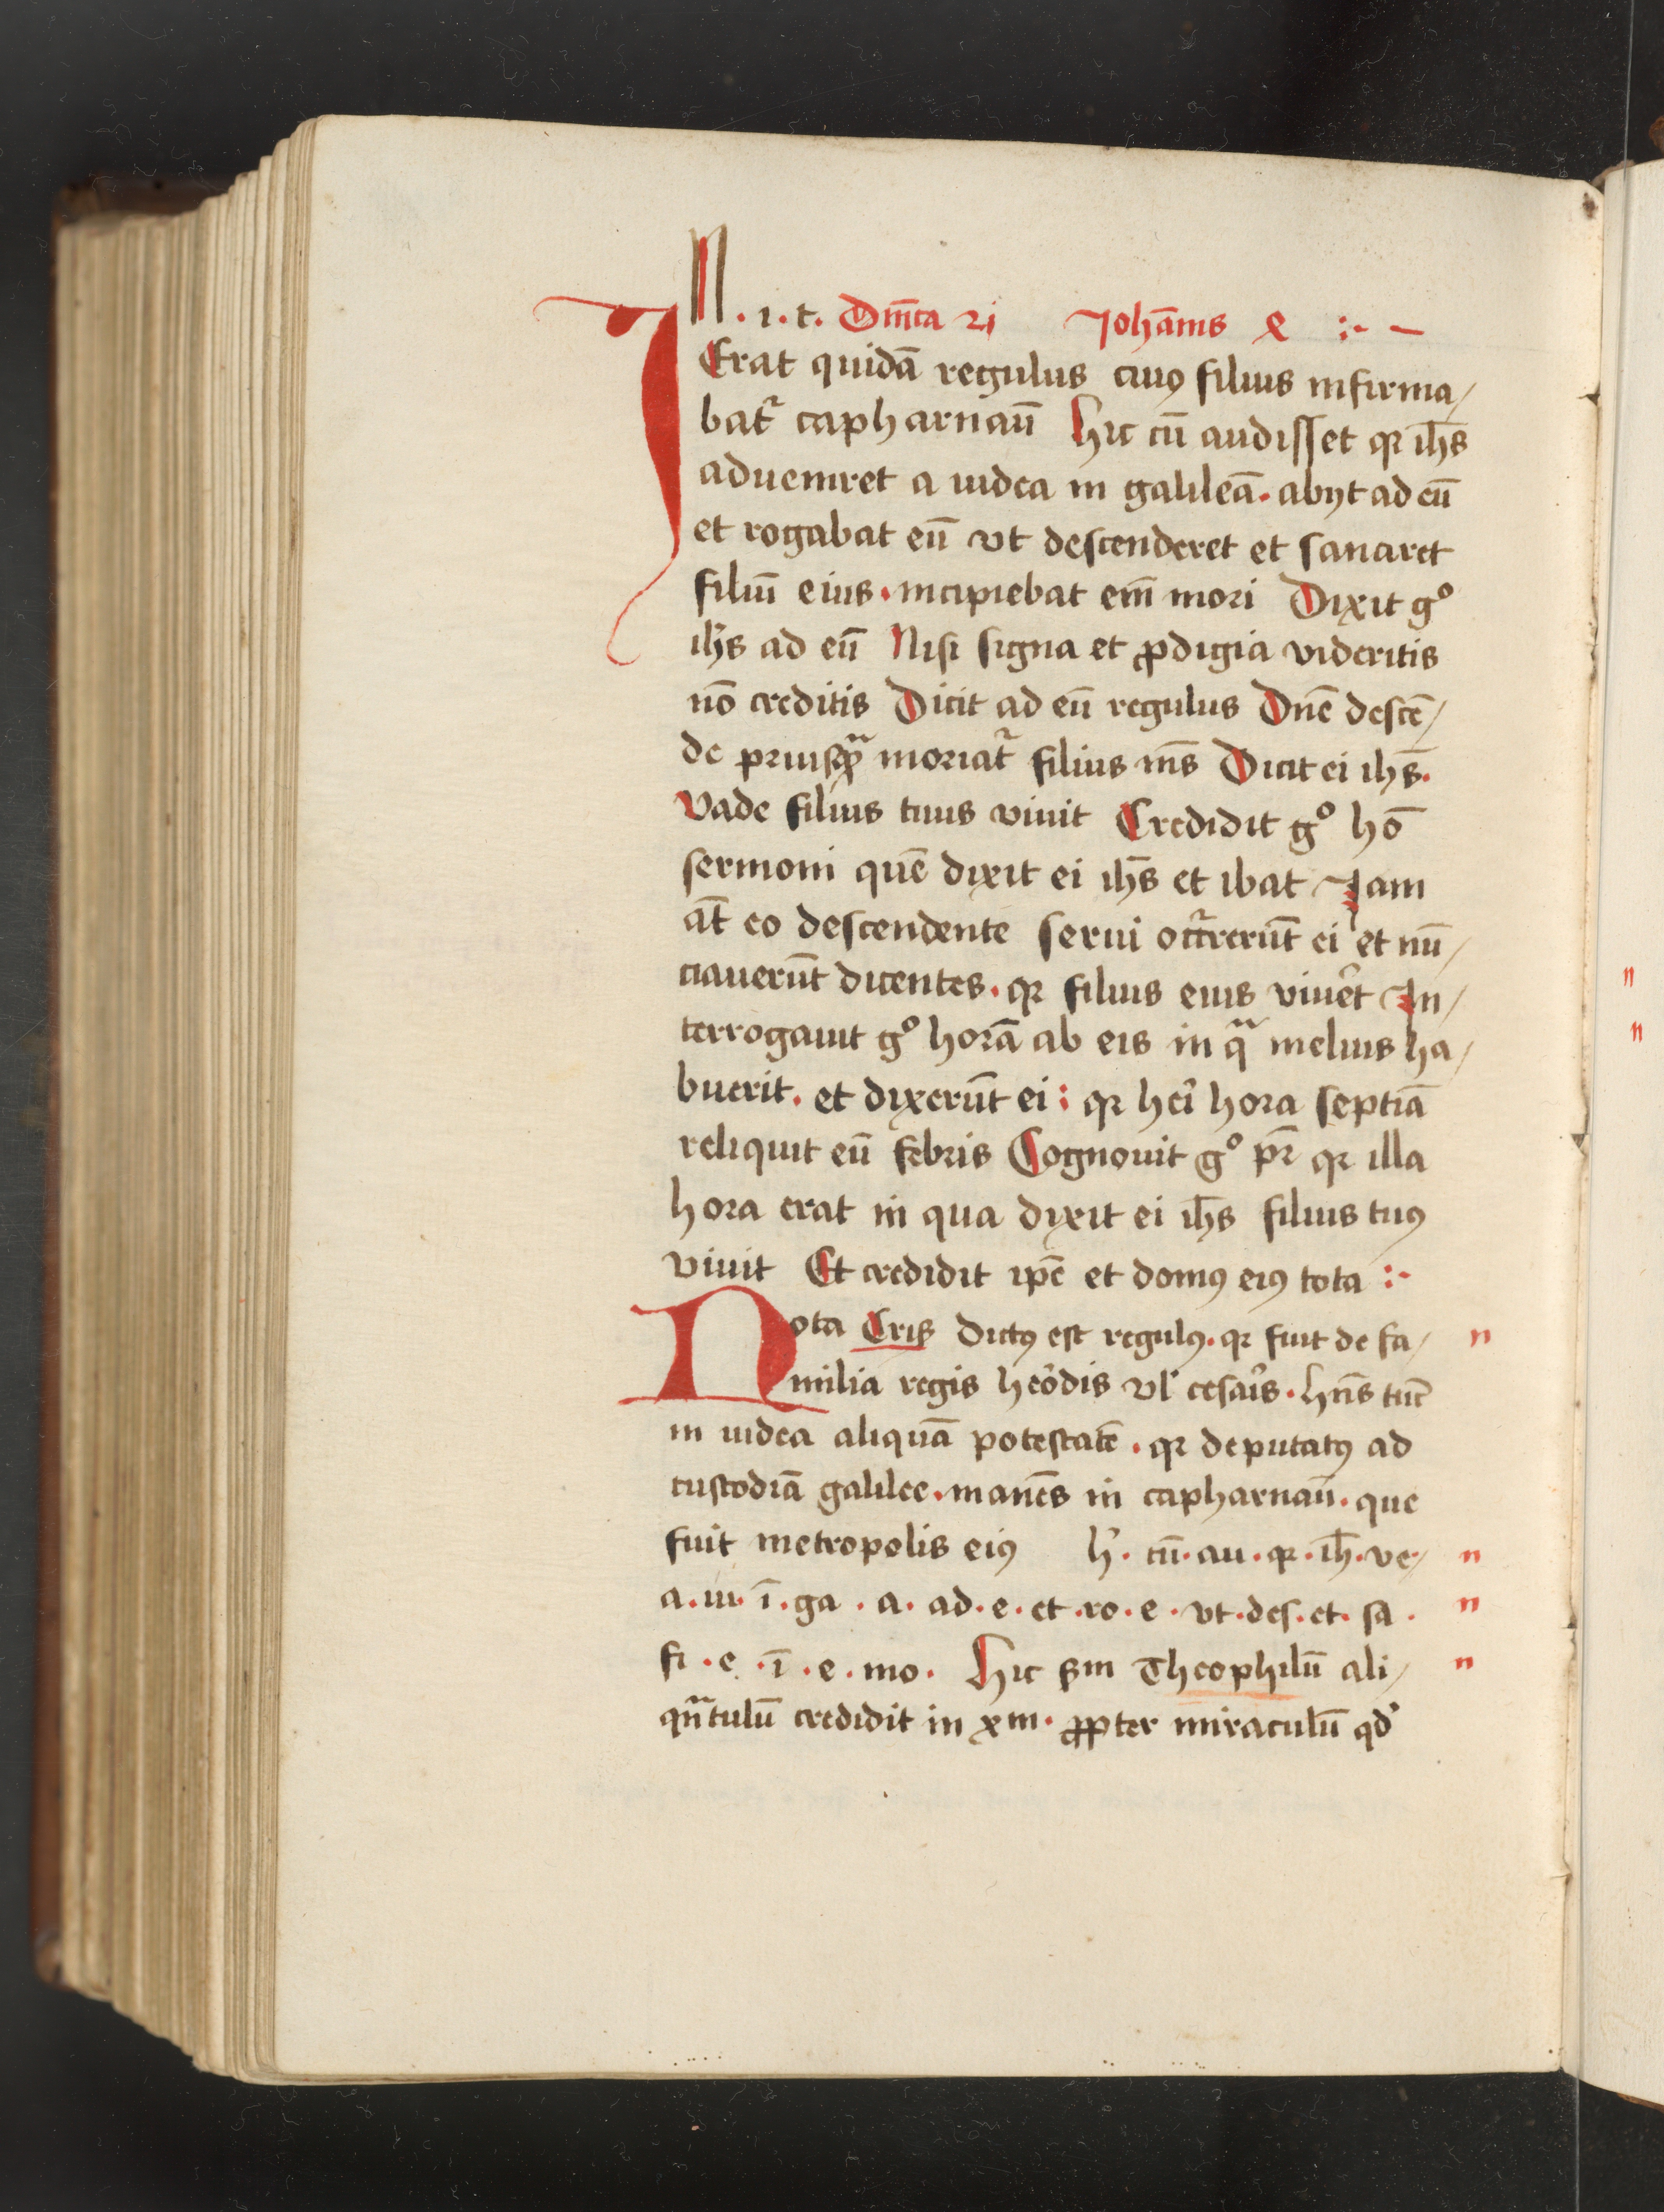 In · i · t · Dnīca 21 Johānis 4 :·
Erat quidā regulus cuiꝰ filius infirma/
batr capharnaū Hic cū audisset qꝛ ihs̄
adueniret a iudea in galileā · abijt ad eū
et rogabat eū vt descenderet et sanaret
filiū eius · incipiebat em̄ mori Dixit gº
ihs̄ ad eū Nisi signa et ꝓdigia videritis
nō creditis Dicit ad eū regulus Dnē descē/
de priusqᷓ moriatr filius me͞s Dicit ei ihs̄ ·
Vade filius tuus viuit Credidit gº hō
sermoni quē dixit ei ihs̄ et ibat Jam
at̄ eo descendente serui occ͛rerūt ei et nū/
ciauerūt dicentes · qꝛ filius eius viuēt In/
terrogauit gº horā ab eis in qᷓ melius ha/
buerit · et dixerūt ei : qꝛ heī hora septiā
reliquit eū febris Cognouit gº pr̄ qꝛ illa
hora erat in qua dixit ei ihs̄ filius tuꝰ
viuit Et credidit ipē et domꝰ eiꝰ tota :·
Nota Cris dictꝰ est regulꝰ · qꝛ fuit de fa/
milia regis heōdis vl̓ cesaīs · hn̄s tūc
in iudea aliquā potestatē · qꝛ deputatꝰ ad
custodiā galilee · manēs in capharnaū · que
fuit metropolis eiꝰ h̓ · cū · au · qꝛ · ih̄ · ve/
a · iu · ī · ga · a · ad · e · et · ro · e · vt · des · et · sa ·
fi · e · ī · e · mo · Hic sm̄ Theophilū ali/
qᷓntulū credidit in xm̄ · ꝓpter miraculū qd̓